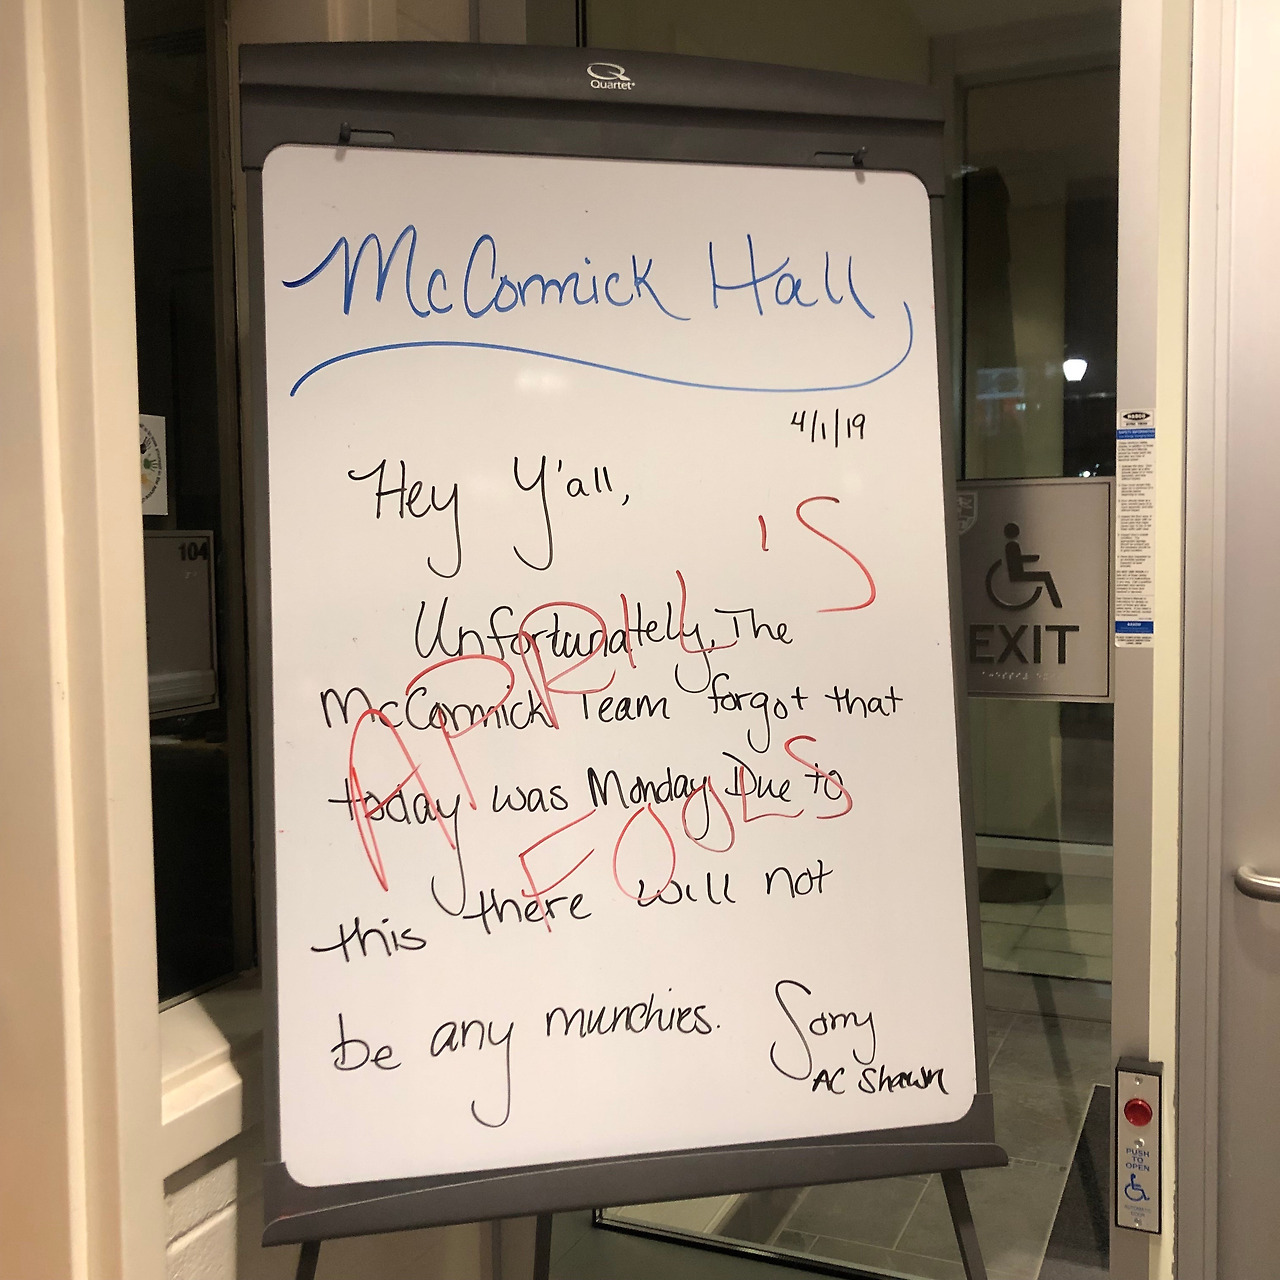 Quartet
McCormick Hall
4/1/19
Hey Y'all,
Unfortunately, The
McCormick Team forgot that
today was Monday Due to
this there will not
be any munchies. Sorry
AC Shawn
APRIL'S
FOOLS
104
EXIT
PUSH
TO
OPEN